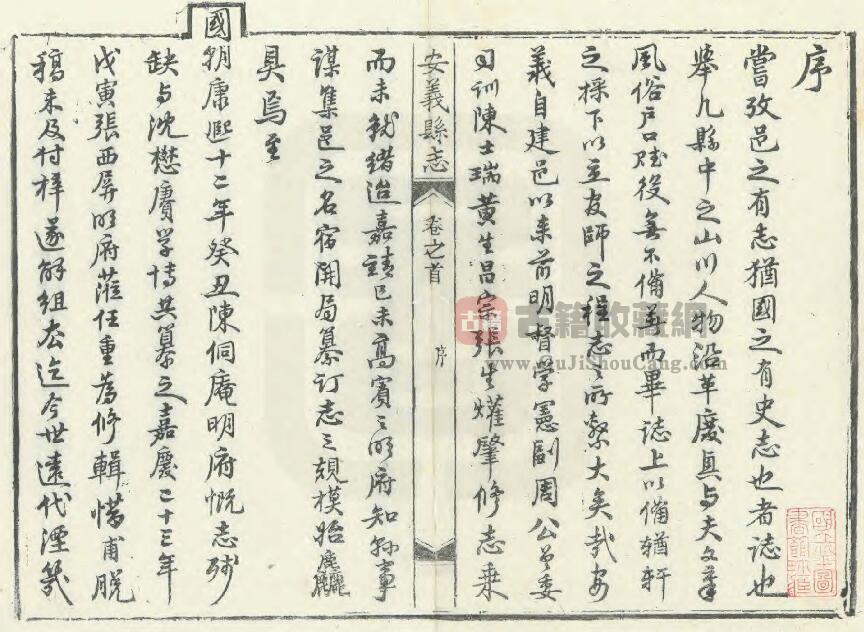 序
嘗攷邑之有志猶國之有史志也者誌也
舉凡縣中之山川人物沿革廢興与夫文章
風俗戶口賦役無不備萃而畢誌上以備輶軒
之採下以立友師之程志之所繫大矣哉安
義自建邑以来前明督學憲副周公曾委
司訓陳士瑞黃生昌宗張生爟肇修志乗
安義縣志
卷之首
序
而未就緒迨嘉靖己未高賓之明府知縣事
謀集邑之名宿開局纂订志之規模始麤
具焉至
國朝康熙十二年癸丑陳侗庵明府慨志殘
缺与沈懋賡学博共纂之嘉慶二十三年
戊寅張西屏明府蒞任重為修輯惜甫脫
稿未及付梓遂解组去迄今世遠代湮幾
古籍收藏網
www.GuJiShouCang.com